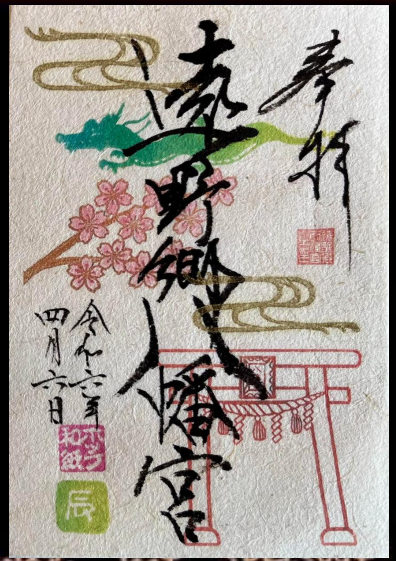 奉拝
遠野郷八幡宮
令和六年
四月六日
辰